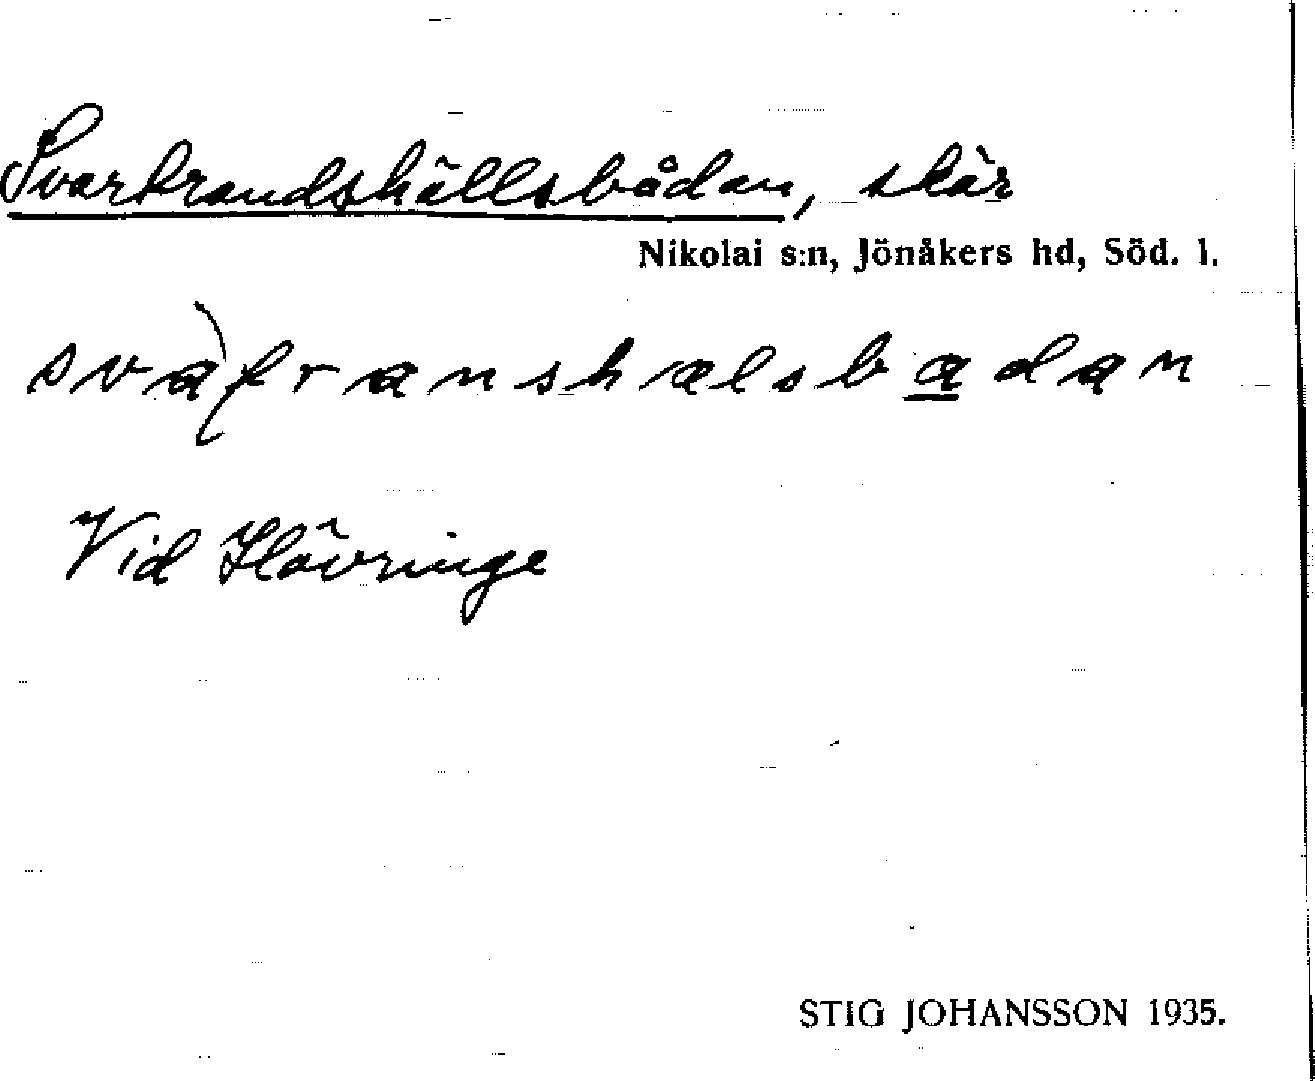 Svarbrandshällsbådan, skär
Nikolai s:n, Jönåkers hd, Söd. l.
Vid Hävringe
STIG JOHANSSON 1935.